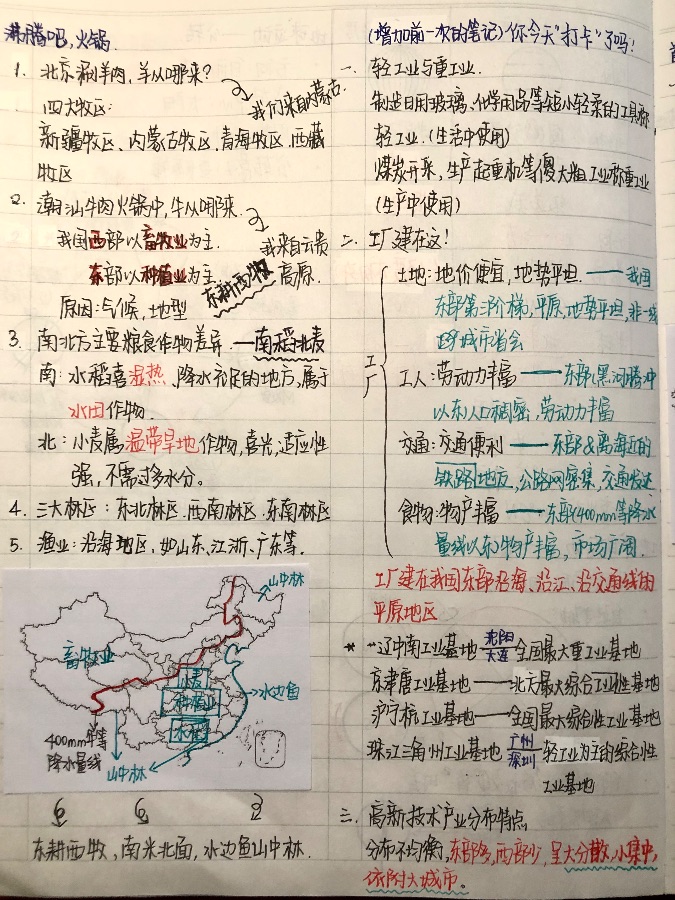 沸腾吧,火锅.
1. 北京涮羊肉,羊从哪来?
我们来自内蒙古.
四大牧区:
新疆牧区、内蒙古牧区、青海牧区、西藏
牧区
2. 潮汕牛肉火锅中,牛从哪来.
我来自云贵
高原.
我国西部以畜牧业为主.
东部以种植业为主.
东耕西牧
原因:气候,地型
3. 南北方主要粮食作物差异 — 南稻北麦
南:水稻喜湿热、降水充足的地方,属于
水田作物.
北:小麦属温带旱地作物,喜光,适应性
强,不需过多水分。
4. 三大林区:东北林区.西南林区.东南林区
5. 渔业:沿海地区,如山东、江浙、广东等.
山中林
畜牧业
小麦
种植业
水稻
水边鱼
400mm年等
降水量线
山中林
东耕西牧,南米北面,水边鱼山中林.
(增加前一次的笔记)你今天"打卡"了吗!
一、轻工业与重工业.
制造日用玻璃、化学用品等短小轻柔的工具称
轻工业.(生活中使用)
煤炭开采,生产起重机等傻大粗工业称重工业
(生产中使用)
二、工厂建在这!
工厂
土地:地价便宜,地势平坦.——我国
东部第三阶梯,平原,地势平坦,非一线
城市省会
工人:劳动力丰富——东部(黑河腾冲
以东)人口稠密,劳动力丰富
交通:交通便利——东部&离海近的
铁路地方,公路网密集,交通发达
食物:物产丰富——东部(400mm等降水
量线以东)物产丰富,市场广阔.
工厂建在我国东部沿海、沿江、沿交通线的
平原地区
* 辽中南工业基地 沈阳 大连 全国最大重工业基地
京津唐工业基地——北方最大综合工业性基地
沪宁杭工业基地——全国最大综合性工业基地
珠江三角州工业基地 广州 深圳 轻工业为主的综合性
工业基地
三、高新技术产业分布特点
分布不均衡,东部多,西部少,呈大分散,小集中,
依附大城市。